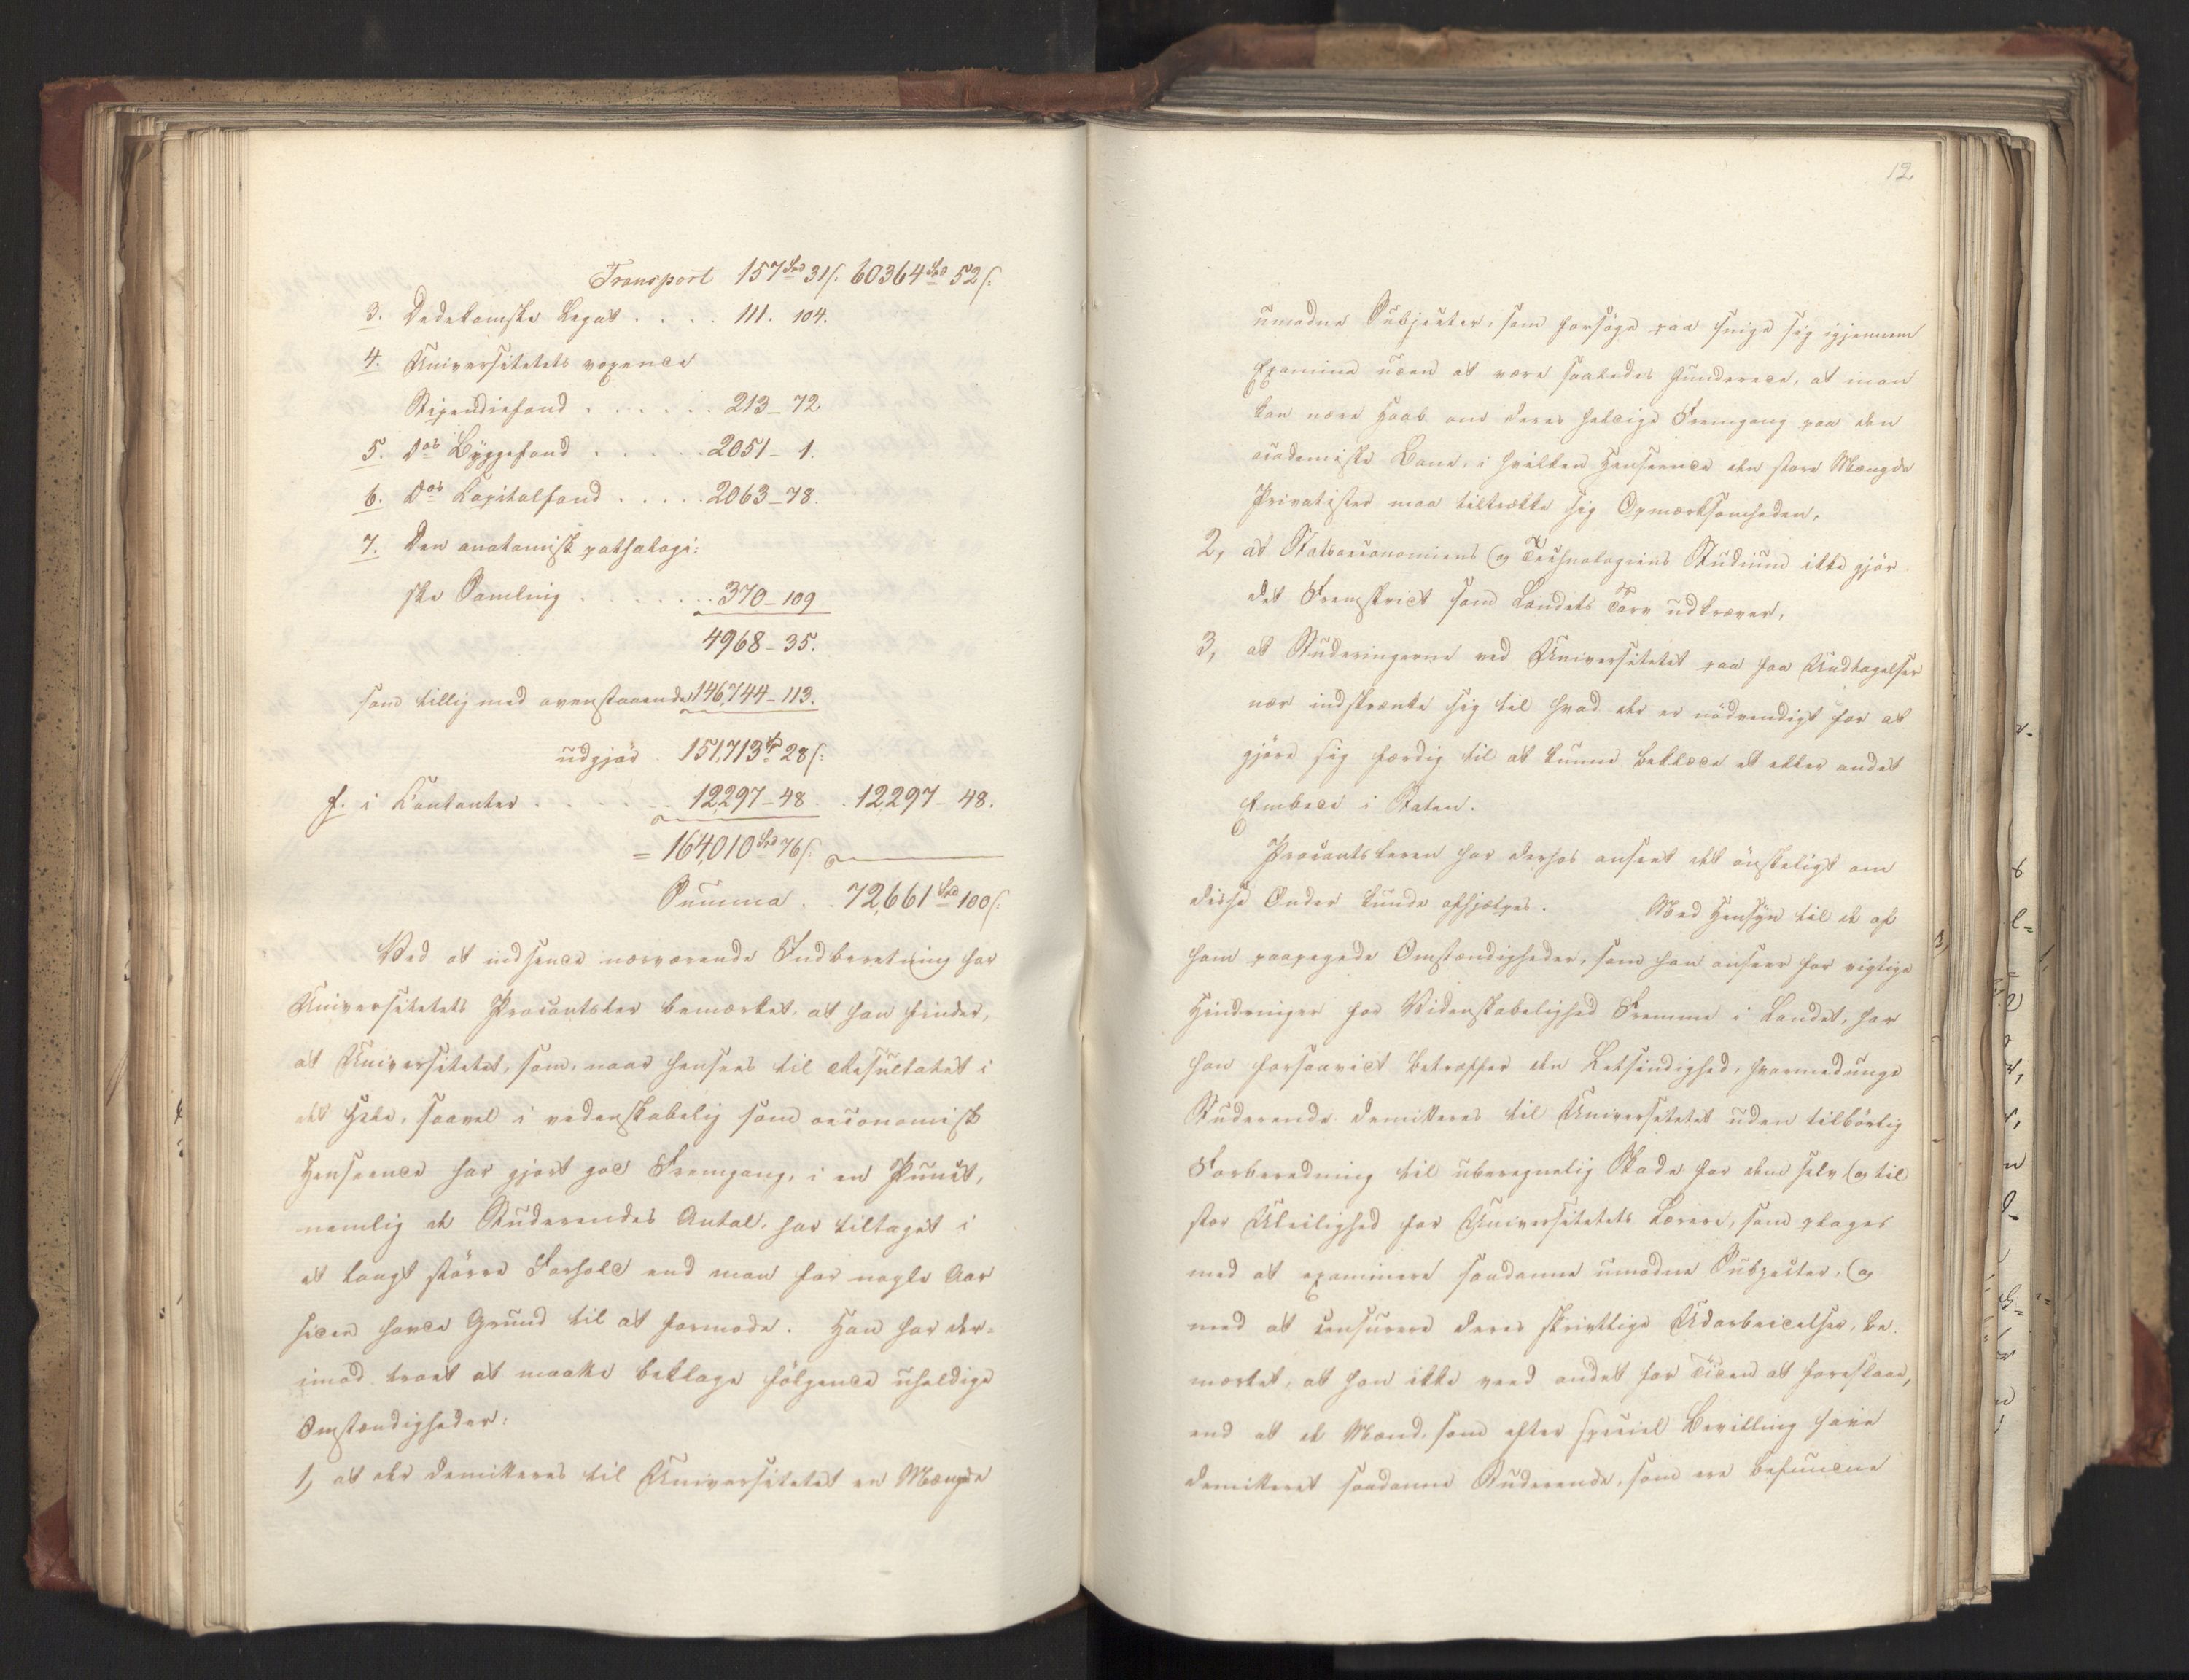 Transport 157 Spd 31 s. 60364 Spd 52 s.
3. Dedekamske Legat . . . . 111. 104.
4. Universitetets voxende
Stipendiefond . . . . . . 213 - 72
5. Dos Byggefond . . . . . 2051 - 1.
6. Dos Capitalfond . . . . . 2063 - 78.
7. Den anatomisk pathologi:
ske Samling . . . . . . . 370 - 109
4968 - 35.
som tillig med ovenstaaende 146,744 - 113.
udgjør 151,713 Sp 28 s.
f. i Contanter . . . . . . 12,297 - 48 . . 12297 - 48.
= 164,010 Spd 76 s.
Summa . . 72,661 Spd 100 s.
Ved at indsende nærværende Indberetning har
Universitetets Procantsler bemærket, at han finder,
at Universitetet, som, naar hensees til Resultatet i
det Hele, saavel i videnskabelig som oeconomisk
Henseende har gjort god Fremgang, i en Punct,
nemlig de Studerendes Antal, har tiltaget i
et langt större Forhold end man for nogle Aar
siden havde Grund til at formode. Han har der-
imod troet at maatte beklage fölgende uheldige
Omstændigheder:
1, at der demitteres til Universitetet en Mængde
12
umodne Subjecter, som forsöge paa snige sig igjennem
Examina uden at være saaledes funderede, at man
kan nære Haab om deres heldige Fremgang paa den
academiske Bane, i hvilken Henseende den store Mængde
Privatister maa tiltrække sig Opmærksomheden,
2, at Statsoeconomiens og Technologiens Studium ikke gjör
det Fremskridt som Landets Tarv udkræver,
3, at Studeringerne ved Universitetet paa faa Undtagelser
nær indskrænke sig til hvad der er nödvendigt for at
gjöre sig færdig til at kunne beklæde et eller andet
Embede i Staten.
Procantsleren har derhos anseet det önskeligt om
disse Onder kunde afhjælpes. Med Hensyn til de af
ham paapegede Omstændigheder, som han anseer for vigtige
Hindringer for Videnskabelighed Fremme i Landet, har
han forsaavidt betræffer den Letsindighed, hvormed unge
Studerende demitteres til Universitetet uden tilbörlig
Forberedning til uberegnelig Skade for dem selv og til
stor Uleilighed for Universitetets Lærere, som plages
med at examinere saadanne umodne Subjecter, og
med at censurere deres skrivtlige Udarbeidelser, be-
mærket, at han ikke veed andet for Tiden at foreslaae,
end at de Mænd, som efter speciel Bevilling have
demitteret saadanne Studerende, som ere befundne